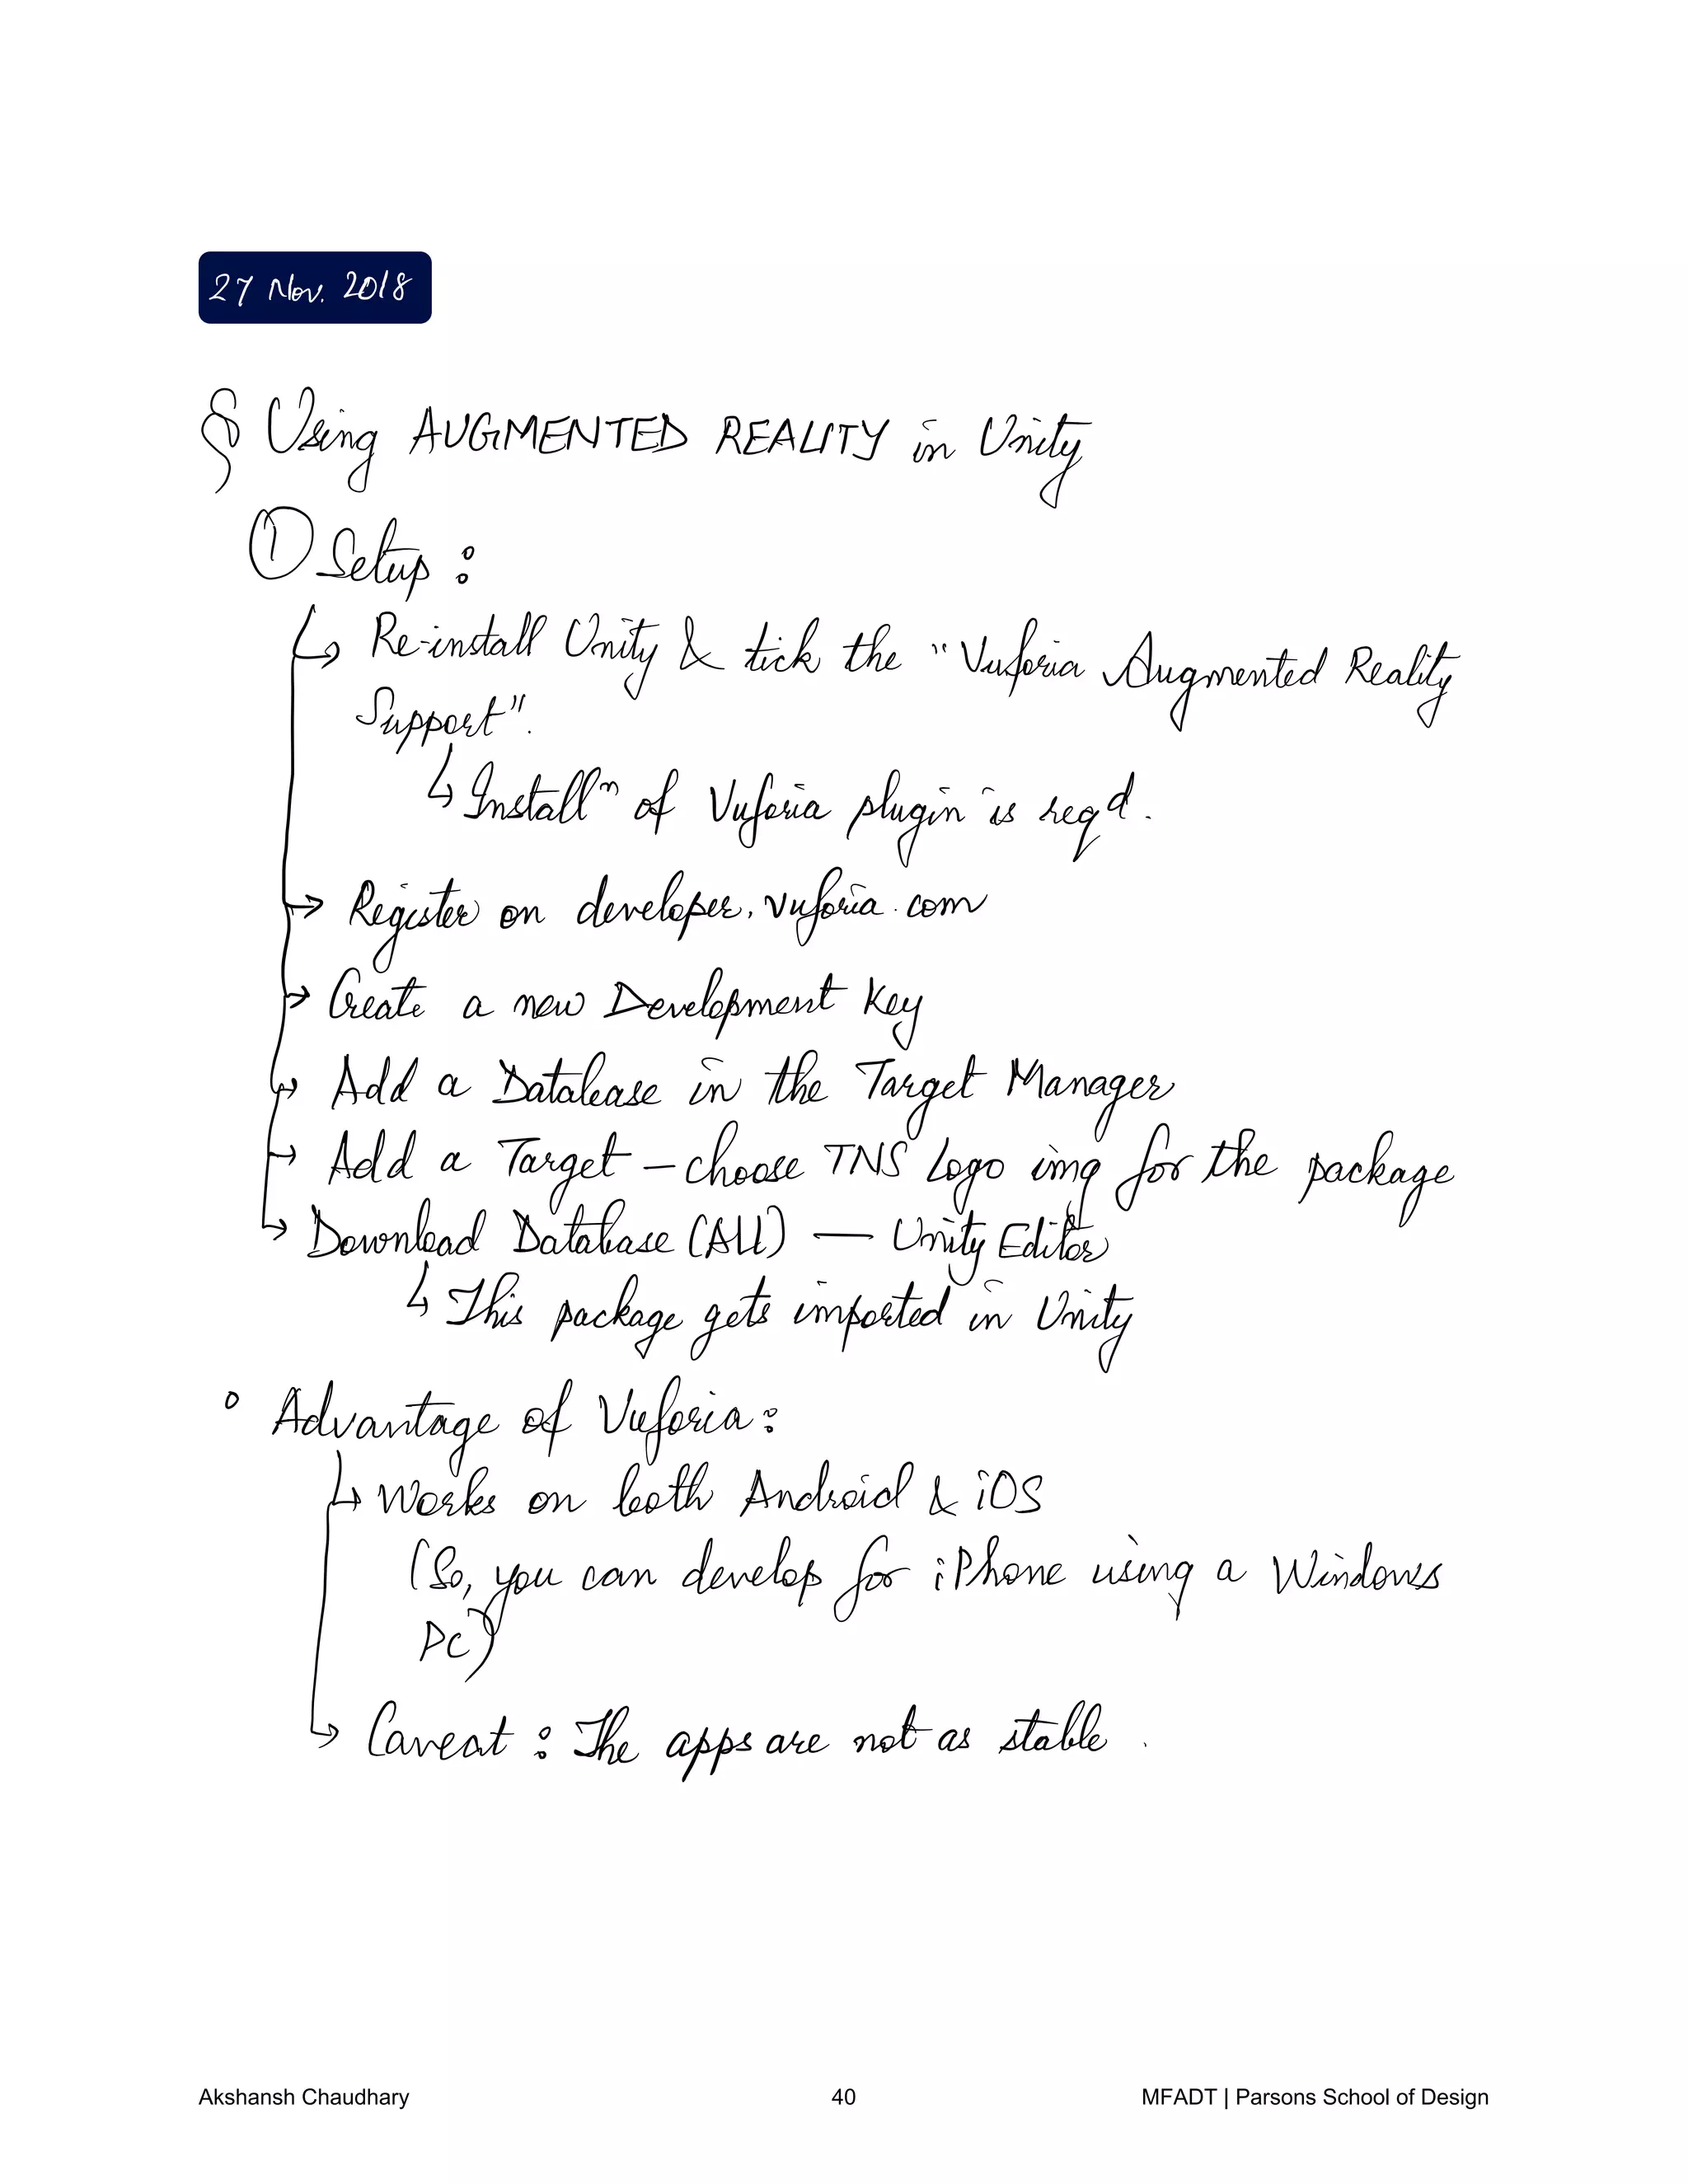 27 Nov. 2018
§ Using AUGMENTED REALITY in Unity
① Setup :
↳ Re-install Unity & tick the "Vuforia Augmented Reality
Support".
↳ Installⁿ of Vuforia plugin is reqd.
→ Register on developer.vuforia.com
→ Create a new Development Key
↳ Add a Database in the Target Manager
→ Add a Target – choose TNS Logo img for the package
↳ Download Database (All) — Unity Editor
↳ This package gets imported in Unity
° Advantage of Vuforia :
↳ Works on both Android & iOS
(So, you can develop for iPhone using a Windows
PC)
↳ Caveat : The apps are not as stable.
Akshansh Chaudhary 40 MFADT | Parsons School of Design